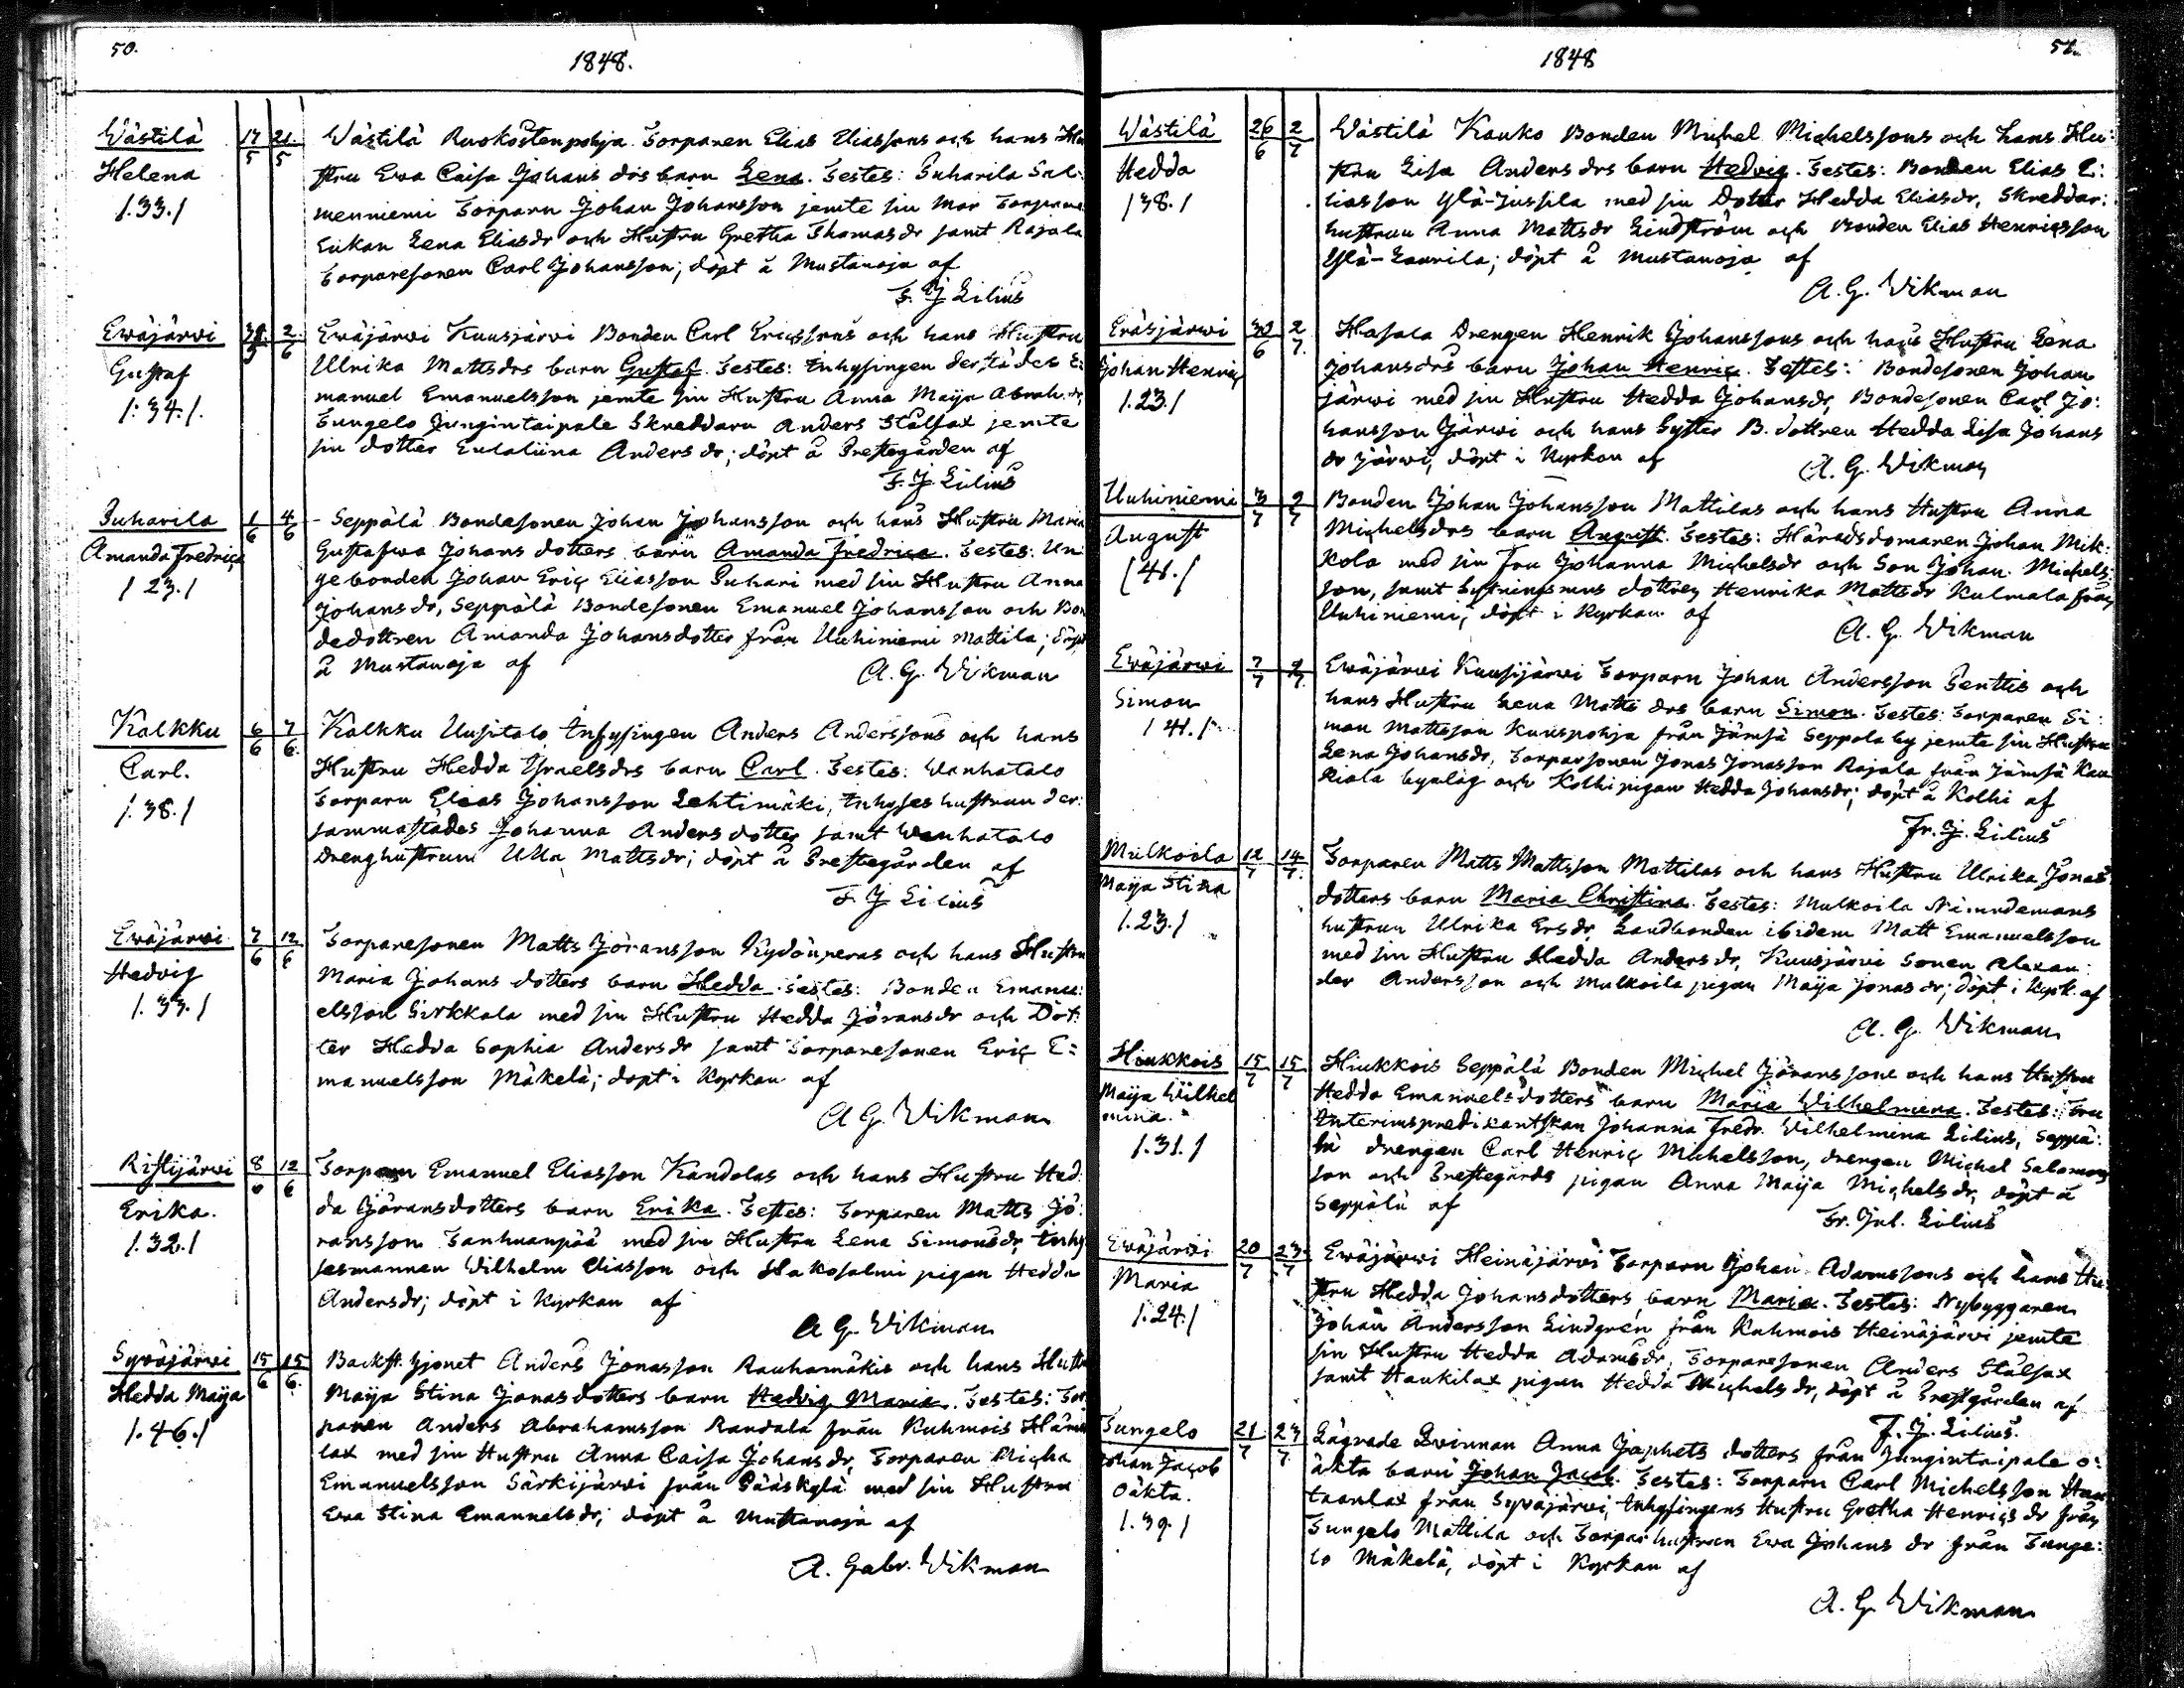 50.
1848.
Wästilä
Helena
/.33./
17/5
21/5
Wästilä Ruokostenpohja Torparen Elias Eliassons och hans Hu
stru Ewa Caisa Johans drs barn Lena. Testes: Puharila Sal:
menniemi Torparn Johan Johansson jemte sin Mor Torpare
Enkan Lena Eliasdr och Hustru Gretha Thomasdr samt Rajala
Torparesonen Carl Johansson; döpt å Mustanoja af
F. J Lilius
Ewäjärwi
Gustaf
/:34./.
2/6
Ewäjärwi Kuusjärwi Bonden Carl Ericssons och hans Hustru
Ulrika Mattsdrs barn Gustaf. Testes: Inhysingen derstädes E:
manuel Emanuelsson jemte sin Hustru Anna Maija Abrah. dr,
Tungelo Jungintaipale Skreddarn Anders Stålfax jemte
sin dotter Eulaliina Anders dr; döpt å Prestegården af
F. J. Lilius
Puharila
Amanda Fredrica
/ 23./
1/6
4/6
- Seppälä Bondesonen Johan Johansson och hans Hustru Maria
Gustafwa Johans dotters barn Amanda Fredrica. Testes: Un
gebonden Johan Eric Eliasson Puhari med sin Hustru Anna
Johansdr, Seppälä Bondesonen Emanuel Johansson och Bon
dedottren Amanda Johansdotter från Uuhiniemi Mattila; döpt
å Mustanoja af
A. G. Wikman
Kalkku
Carl.
/.38./
6/6
7/6.
Kalkku Uusitalo Inhysingen Anders Anderssons och hans
Hustru Hedda Israelsdrs barn Carl. Testes: Wanhatalo
Torparn Elias Johansson Lehtimäki, Inhyses hustrun der:
sammastädes Johanna Anders dotter samt Wanhatalo
Drenghustrun Ulla Mattsdr; döpt å Prestegården af
F. J Lilius
Ewäjärwi
Hedvig
/.33./
7/6
12/6
Torparesonen Matts Jöransson Kydönperas och hans Hustru
Maria Johans dotters barn Hedda. Testes: Bonden Emanu:
elsson Sirkkala med sin Hustru Hedda Jöransdr och Dot:
ter Hedda Sophia Andersdr samt Torparesonen Eric E:
manuelsson Mäkelä; döpt i Kyrkan af
A G. Wikman
Ristijärwi
Erika.
/.32./
8/6
12/6
Torparn Emanuel Eliasson Kandolas och hans Hustru Hed:
da Jöransdotters barn Erika. Testes: Torparen Matts Jö:
ransson Tanhuanpää med sin Hustru Lena Simonsdr, Inhy
sesmannen Wilhelm Eliasson och Hakosalmi pigan Hedda
Andersdr; döpt i Kyrkan af
A G. Wikman
Sywäjärwi
Hedda Maija
/.46./
15/6
15/6.
Backst. hjonet Anders Jonasson Rauhamäkis och hans Hustru
Maija Stina Jonasdotters barn Hedvig Maria. Testes: Tor
paren Anders Abrahamsson Randala från Kuhmois Härme
lax med sin Hustru Anna Caisa Johansdr, Torparen Micha
Emanuelsson Särkijärwi från Pääskylä med sin Hustru
Ewa Stina Emanuelsdr; döpt å Mustanoja af
A. Gabr. Wikman
1848
51.
Wästilä
Hedda
/38./
26/6
2/7
Wästilä Kauko Bonden Michel Michelssons och hans Hu:
stru Lisa Andersdrs barn Hedvig. Testes: Bonden Elias E:
liasson Ylä-Jussila med sin Dotter Hedda Eliasdr, Skreddar:
hustrun Anna Mattsdr Lindström och Bonden Elias Henricsson
Ylä-Laurila; döpt å Mustanoja af
A. G. Wikman
Eräsjärwi
Johan Henric
/.23./
30/6
2/7.
Hasala Drengen Henrik Johanssons och hans Hustru Lena
Johansdrs barn Johan Henric. Testes: Bondesonen Johan
Järwi med sin Hustru Hedda Johansdr, Bondesonen Carl Jo:
hansson Järwi och hans Syster B. dottren Hedda Lisa Johans
dr Järwi, döpt i Kyrkan af
A. G. Wikman
Uuhiniemi
August
/41./
3/7
9/7
Bonden Johan Johansson Mattilas och hans Hustru Anna
Michelsdrs barn August. Testes: Häradsdomaren Johan Mik:
kola med sin Fru Johanna Michelsdr och Son Johan Michels:
son, samt dottren Henrika Mattsdr Kulmala från
Uuhiniemi; döpt i Kyrkan af
A. G. Wikman
Ewäjärwi
Simon
/41./
7/7
9/7.
Ewäjärwi Kuusijärwi Torparn Johan Andersson Penttis och
hans Hustru Lena Matts drs barn Simon. Testes: Torparen Si:
mon Mattsson Kuuspohja från Jämsä Seppola by jemte sin Hustru
Lena Johansdr, Torparsonen Jonas Jonasson Rajala från Jämsä Kau
kiala byalag och Kolhi pigan Hedda Johansdr; döpt å Kolhi af
Fr. J. Lilius
Mulkoila
Maija Stina
/.23./
12/7
14/7.
Torparen Matts Mattsson Mattilas och hans Hustru Ulrika Jonas
dotters barn Maria Christina. Testes: Mulkoila Nämndemans
hustrun Ulrika Ersdr, Landbonden ibidem Matt Emanuelsson
med sin Hustru Hedda Andersdr, Kuusjärwi Sonen Alexan:
der Andersson och Mulkoila pigan Maija Jonasdr; döpt i Kyrk. af
A. G. Wikman
Hiukkois
Maija Wilhel
mina.
/.31./
15/7
15/7
Hiukkois Seppälä Bonden Michel Jöranssons och hans Hustru
Hedda Emanuelsdotters barn Maria Wilhelmina. Testes: Fru
Interimspredikantskan Johanna Fredr. Wilhelmina Lilius, Seppä:
lä drengen Carl Henric Michelsson, drengen Michel Salomons
son och Prestegårds pigan Anna Maija Michelsdr, döpt å
Seppälä af
Fr. Jul. Lilius
Ewäjärwi
Maria
/.24./
20/7
23/7
Ewäjärwi Heinäjärwi Torparn Johan Adamssons och hans Hu:
stru Hedda Johansdotters barn Maria. Testes: Nybyggaren
Johan Andersson Lindgren från Kuhmois Heinäjärwi jemte
sin Hustru Hedda Adamsdr, Torparesonen Anders Stålfax
samt Haukilax pigan Hedda Michelsdr, döpt å Prestgården af
F. J. Lilius.
Tungelo
Johan Jacob
Oäkta.
/.39./
21/7
23/7
Lägrade Qvinnan Anna Japhets dotters från Jungintaipale o:
äkta barn Johan Jacob. Testes: Torparn Carl Michelsson
från Sywäjärwi, Inhysingens Hustru Gretha Henricsdr från
Tungelo Mattila och Torparhustrun Ewa Johans dr från Tunge:
lo Mäkelä, döpt i Kyrkan af
A. G. Wikman